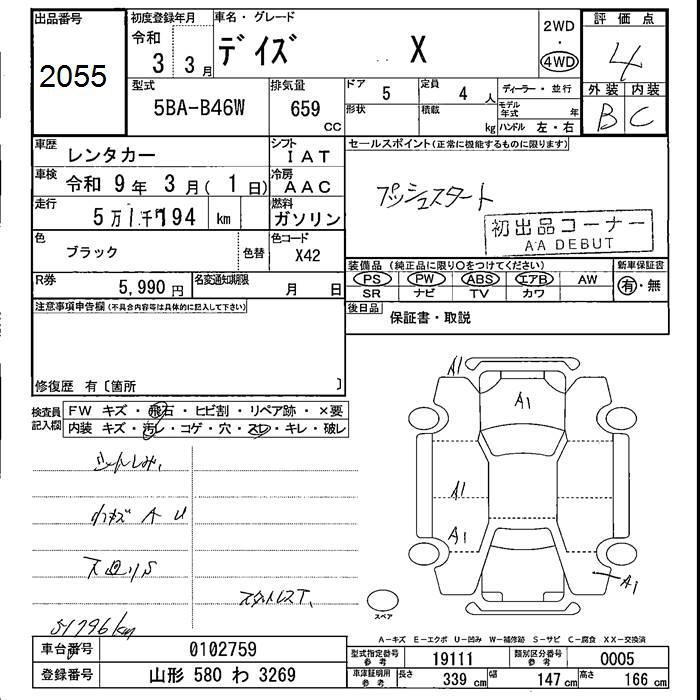 出品番号
2055
初度登録年月
令和
3 3月
車名・グレード
デイズ X
2WD
・
4WD
評価点
4
外装 内装
B C
型式
5BA-B46W
排気量
659
CC
ドア
5
定員
4 人
形状
積載
kg
ディーラー・並行
モデル年式 年
ハンドル 左・右
車歴
レンタカー
シフト
IAT
車検
令和 9年 3月(1日)
冷房
AAC
走行
5万1千794 km
燃料
ガソリン
色
ブラック
色替
色コード
X42
R券
5,990円
名変通知期限
月 日
セールスポイント(正常に機能するものに限ります)
プッシュスタート
初出品コーナー
AA DEBUT
装備品(純正品に限り○をつけてください)
新車保証書
PS PW ABS エアB AW
SR ナビ TV カワ
有・無
後日品
保証書・取説
注意事項申告欄(不具合内容等は具体的に記入して下さい)
修復歴 有〔箇所 〕
検査員記入欄
FW キズ・飛石・ヒビ割・リペア跡・×要
内装 キズ・汚レ・コゲ・穴・スレ・キレ・破レ
シートしみ,
小キズ A U
下廻りS
スタットレスT,
51796km
A1
A1
A1
A1
A1
スペア
A-キズ E-エクボ U-凹み W-補修跡 S-サビ C-腐食 XX-交換済
車台番号
0102759
登録番号
山形 580 わ 3269
型式指定番号
参考
19111
類別区分番号
参考
0005
車庫証明用
参考
長さ
339 cm
幅
147 cm
高さ
166 cm